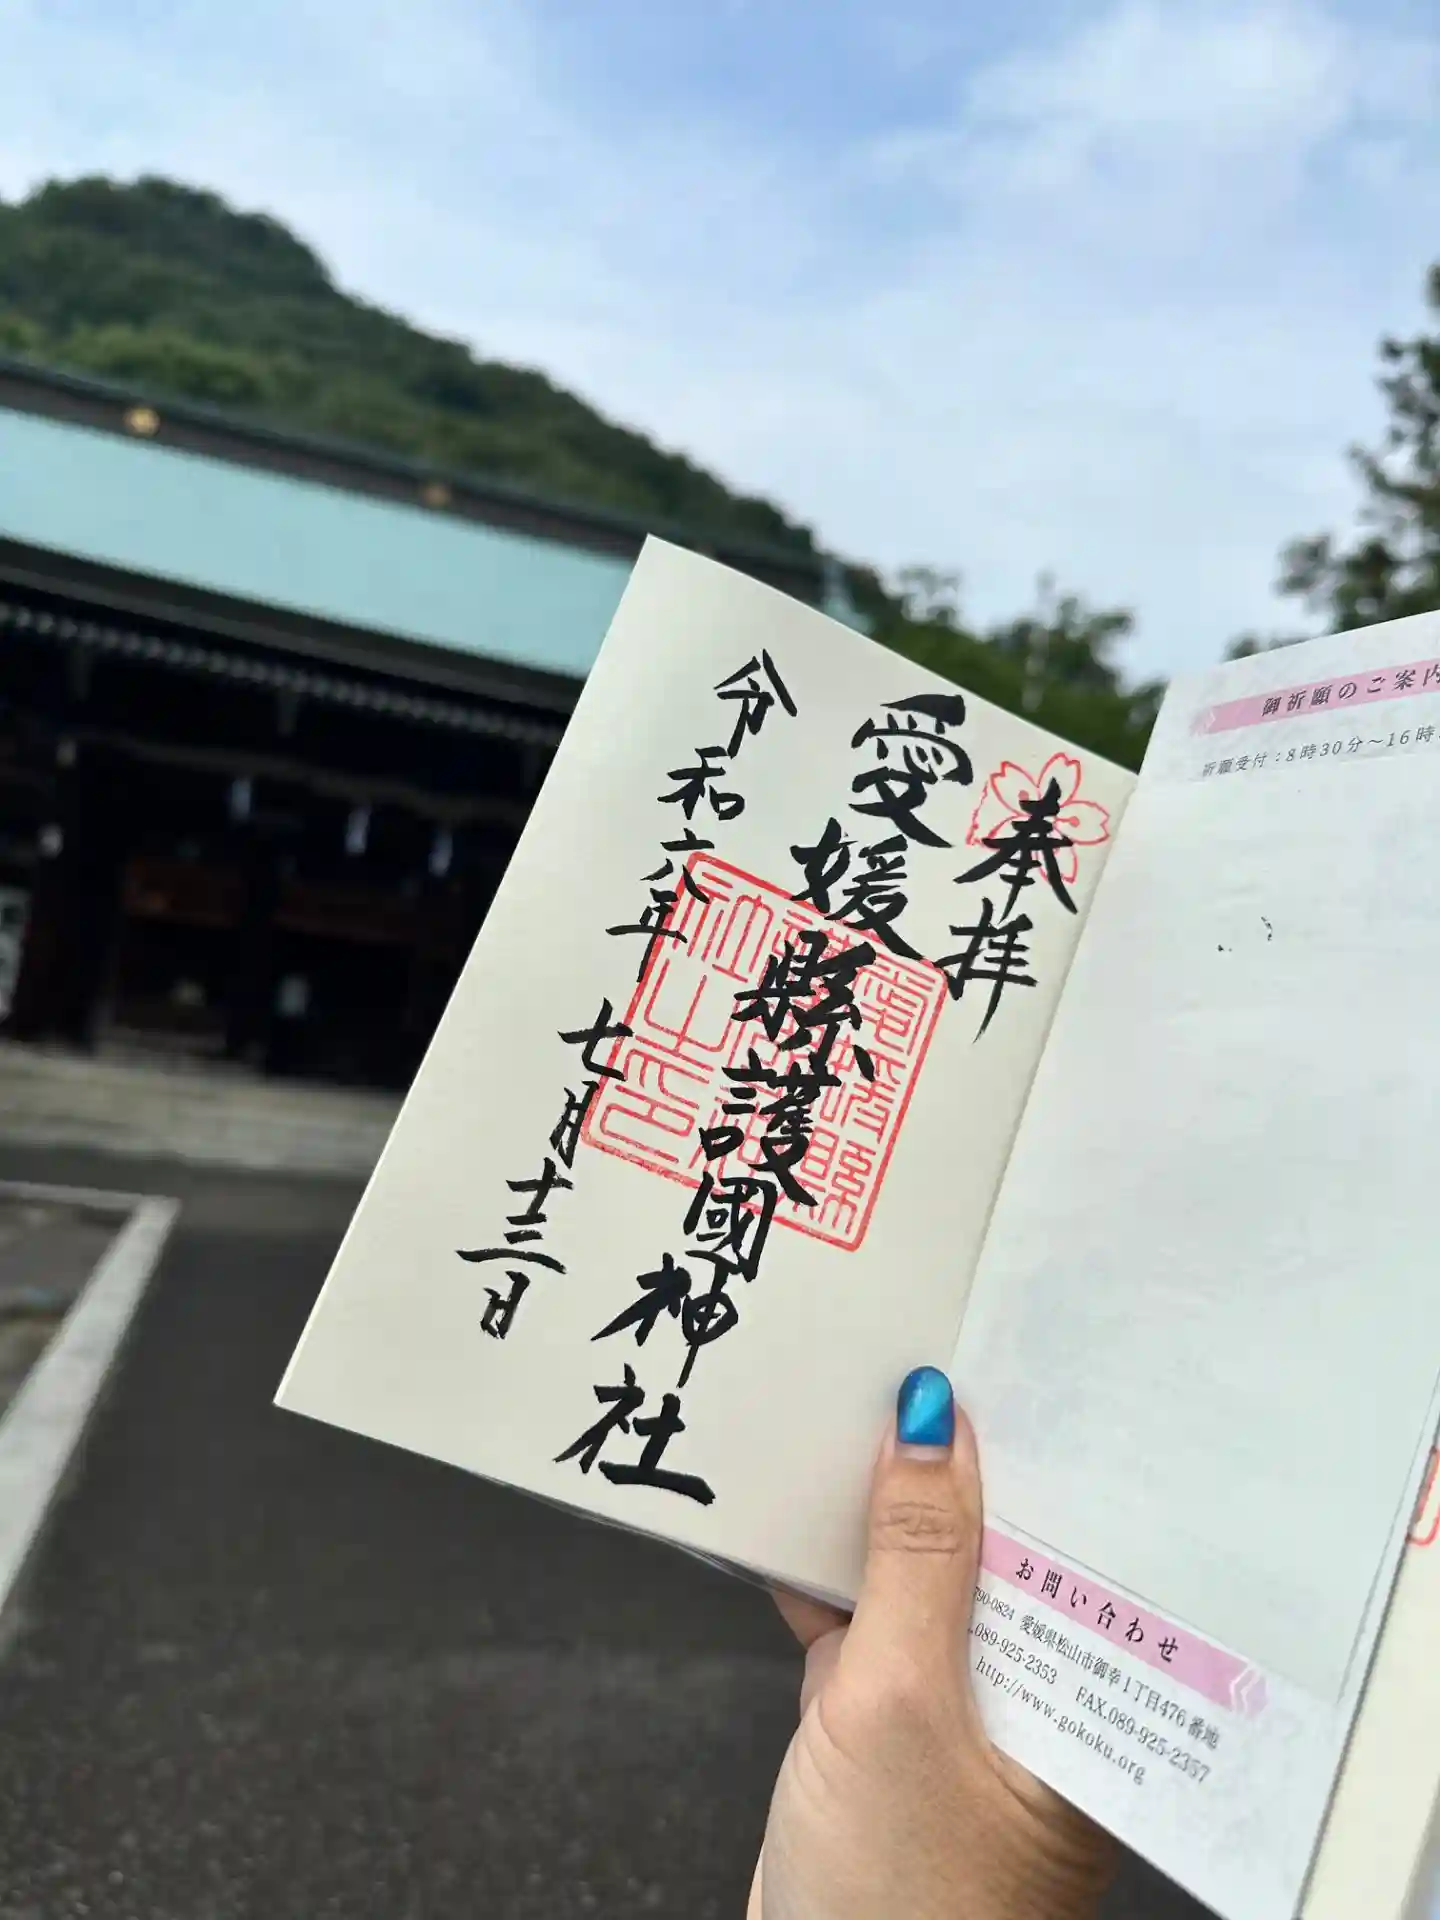 奉拝
愛媛縣護國神社
令和六年七月十三日
御祈願のご案内
祈願受付：8時30分～16時
お問い合わせ
790-0824 愛媛県松山市御幸1丁目476番地
.089-925-2353 FAX.089-925-2357
http://www.gokoku.org